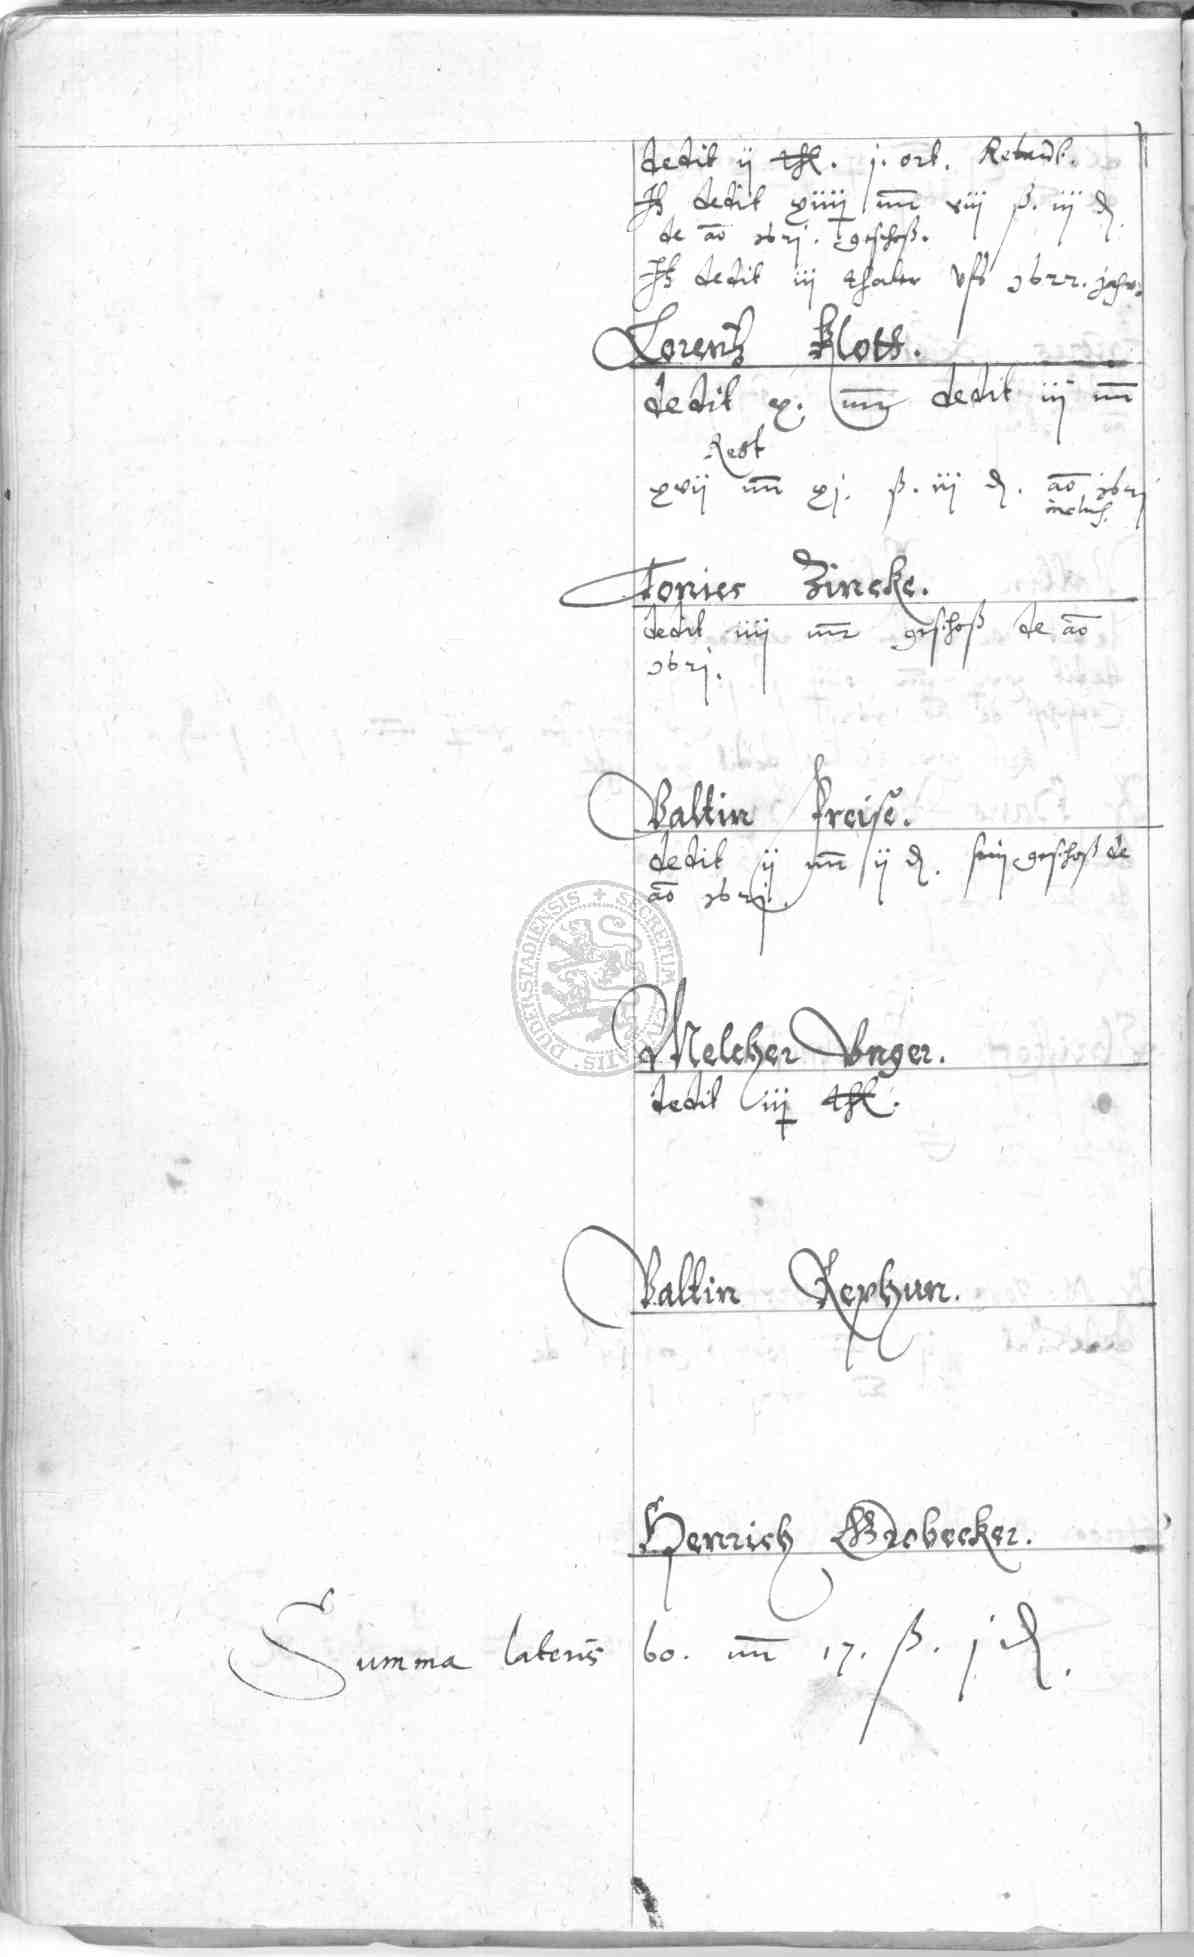 dedit ij thl. j. ort. Retardt.
It dedit xiiij mr viij ß. iij d
de ao 1621. geschoß.
It dedit iij thaler vfs 1622. jahr.
Lorentz Klott.
dedit x. mr dedit iij mr
Rest
xvij mr xj. ß. iij d. ao 1621
inclus.
Tonies Zincke.
dedit iiij mr geschoß de ao
1621.
Valtin Preise.
dedit ij mr ij d. sein geschoß de
ao 1621.
Melcher Vnger.
dedit iij thl.
Valtin Rephun.
Henrich Grobecker.
Summa lateris 60. mr 17. ß. j d.
SECRETUM DUDERSTADIENSIS